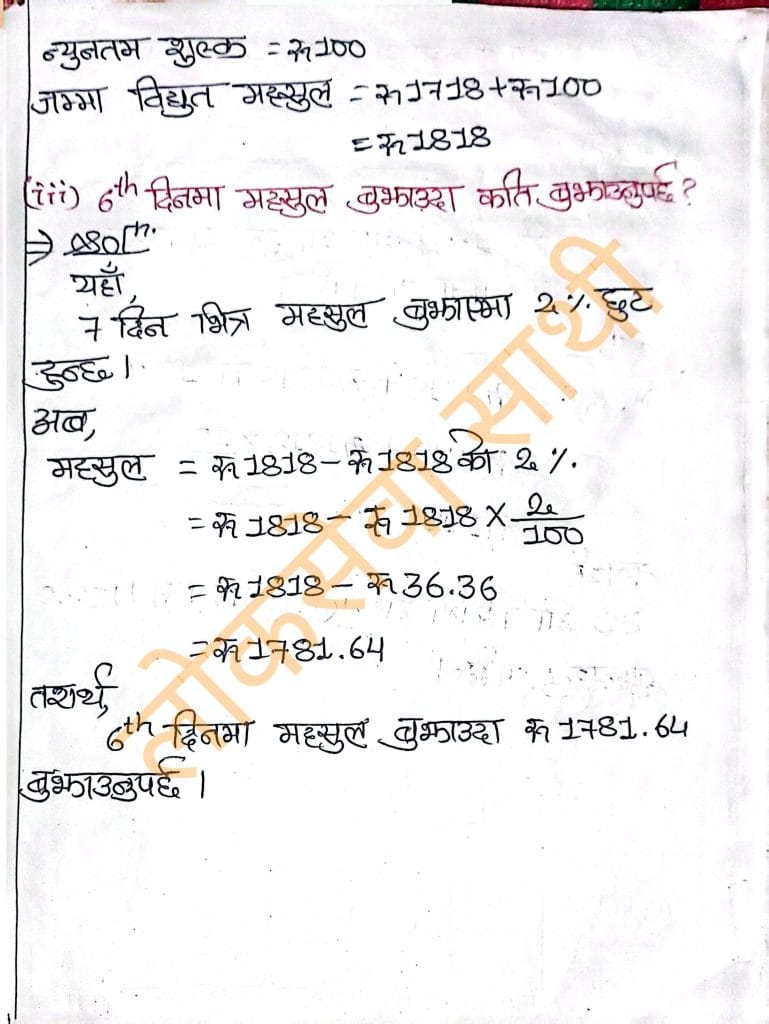 न्युनतम शुल्क = रु100
जम्मा विद्युत महसुल = रु1718 + रु100
= रु1818
(iii) 6th दिनमा महसुल बुझाउदा कति बुझाउनुपर्छ?
⇒ Sol^n.
यहाँ,
7 दिन भित्र महसुल बुझाएमा 2% छुट
हुन्छ।
अब,
महसुल = रु1818 - रु1818 को 2%.
= रु1818 - रु1818 × 2/100
= रु1818 - रु36.36
= रु1781.64
तसर्थ,
6th दिनमा महसुल बुझाउदा रु1781.64
बुझाउनुपर्छ।
लोकसेवा साथी